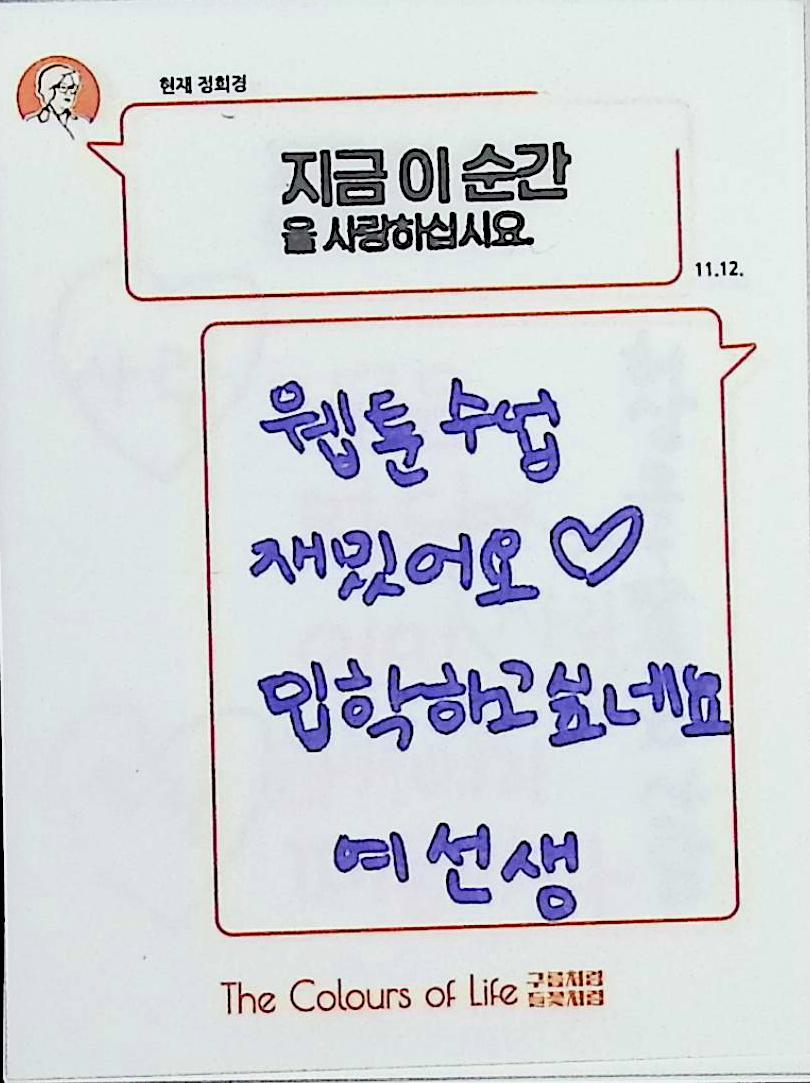 현재 정희경
지금 이 순간
을 사랑하십시요.
11.12.
웹툰 수업
재밌어요♡
입학하고싶네요
예선생
The Colours of Life 구름처럼
들꽃처럼